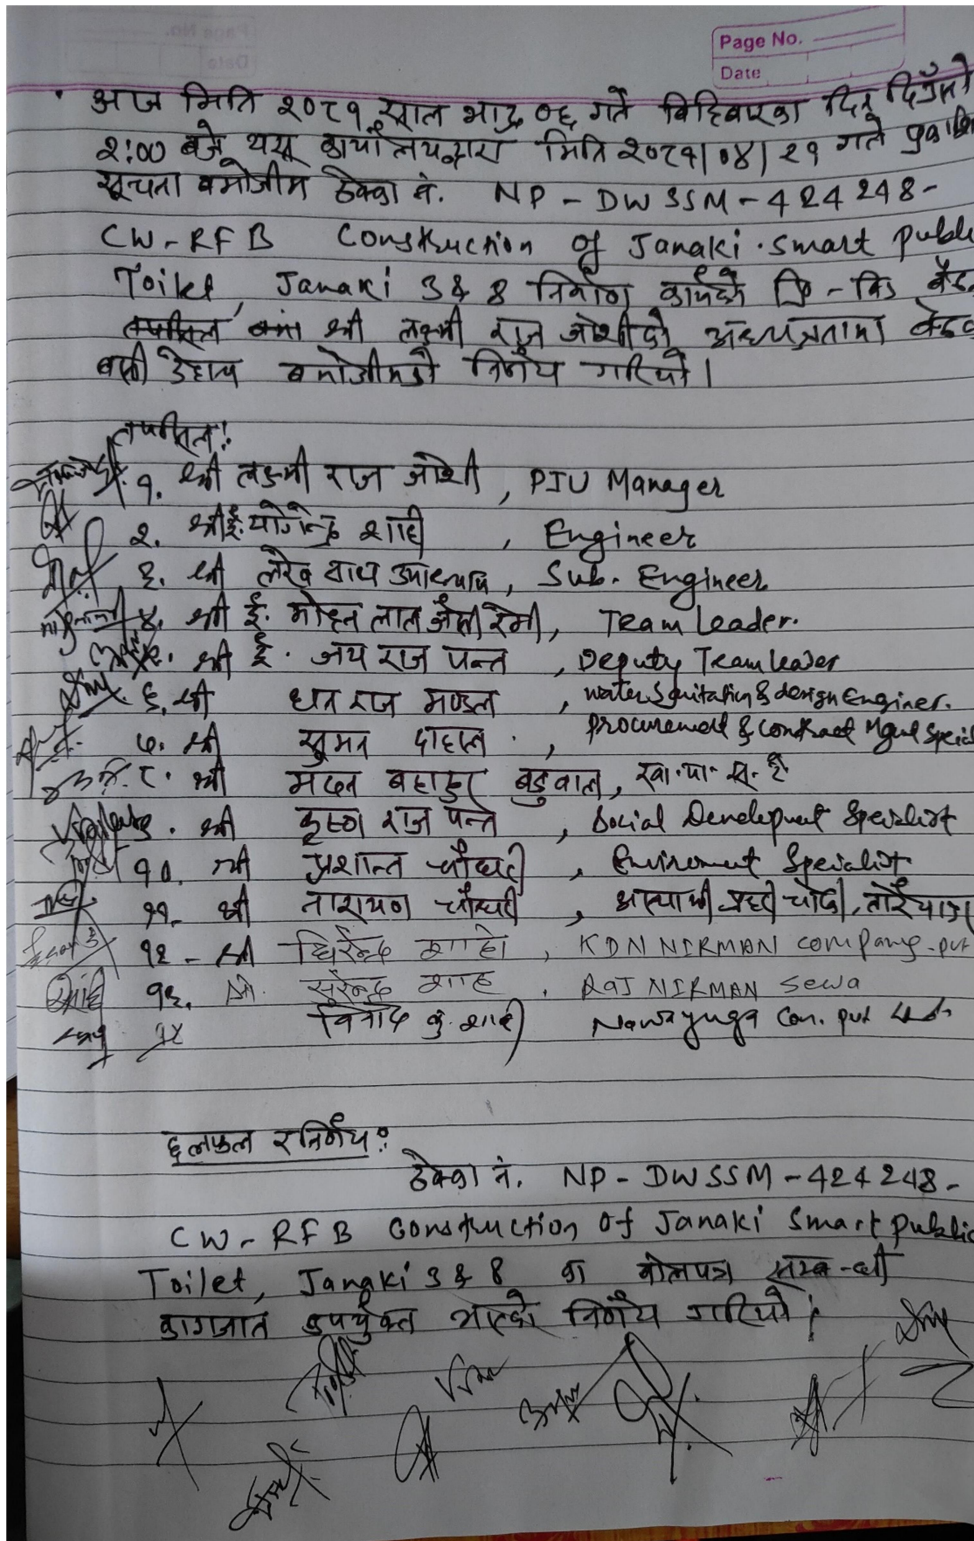 Page No.
Date
आज मिति २०८१ साल भाद्र ०६ गते बिहिबारका दिन दिउँसो
२:00 बजे यस कार्यालयद्वारा मिति २०८१/०४/२१ गते
सूचना बमोजीम ठेक्का नं. NP - DWSSM - 424248 -
CW - RFB Construction of Janaki Smart
Toilet, Janaki 3 & 8 निर्माण कार्यको प्रि - बिड
श्री लक्ष्मी राज जोशीको अध्यक्षतामा
बसी देहाय बमोजीमको निर्णय गरियो।
तपसिल:
१. श्री लक्ष्मी राज जोशी, PIU Manager
२. श्री ई. योगेन्द्र शाही, Engineer
३. श्री लेख नाथ उपाध्याय, Sub. Engineer
४. श्री ई. मोहन लाल जैसी रेग्मी, Team Leader.
श्री ई. जय राज पन्त, Deputy Team leader
६. श्री राज मण्डल, Water Sanitation & design Engineer.
७. श्री सुमन दाहाल, Procurement & contract Mgmt
८. श्री मदन बहादुर बडुवाल, खा. पा. स. टे
श्री कृष्ण राज पन्त, Social Development Specialist
१०. श्री प्रशान्त चौधरी, Enviroment Specialist
११. श्री नारायण चौधरी,
१२ - श्री धिरेन्द्र शाही, KDN NIRMAN company.
१३. श्री सुरेन्द्र शाह, RAJ NIRMAN Sewa
१४ विनोद कु. शाही Nawayuga Con. pvt Ltd.
छलफल र निर्णय:
ठेक्का नं. NP - DWSSM - 424248 -
CW - RFB Construction of Janaki Smart Public
Toilet, Janaki 3 & 8 का बोलपत्र सम्बन्धी
कागजात उपर्युक्त भएको निर्णय गरियो।